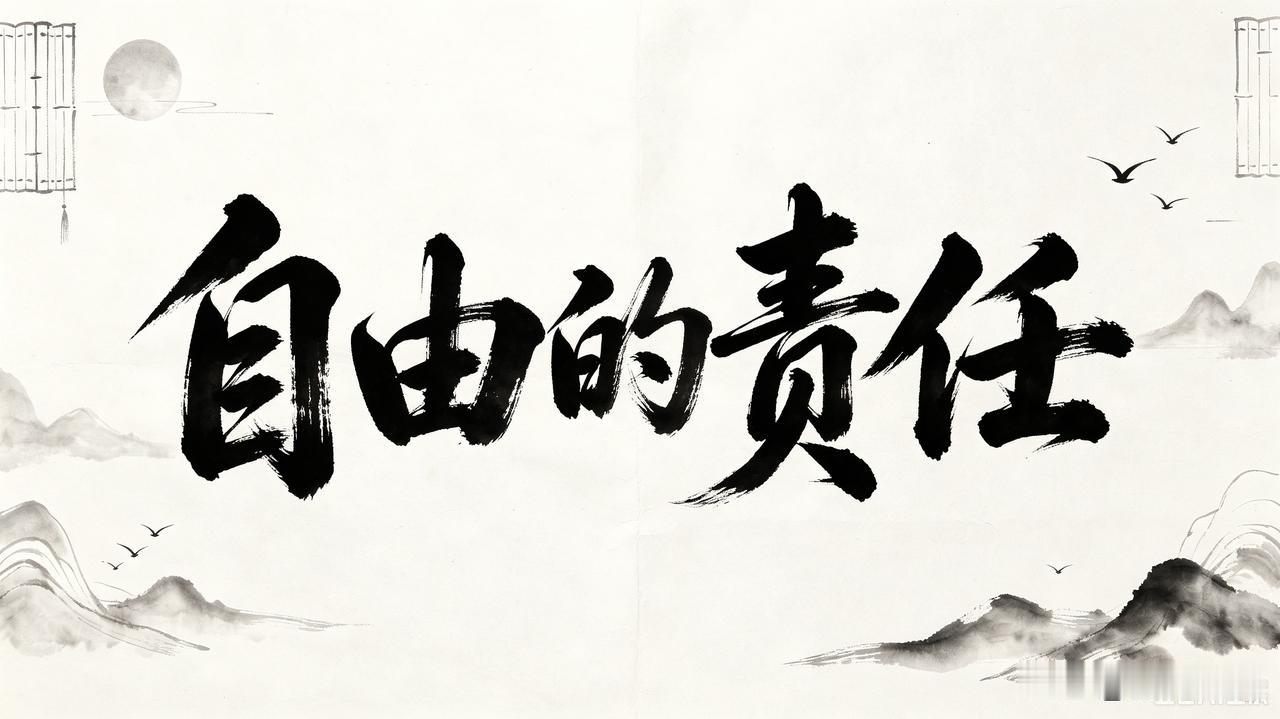 自由的责任